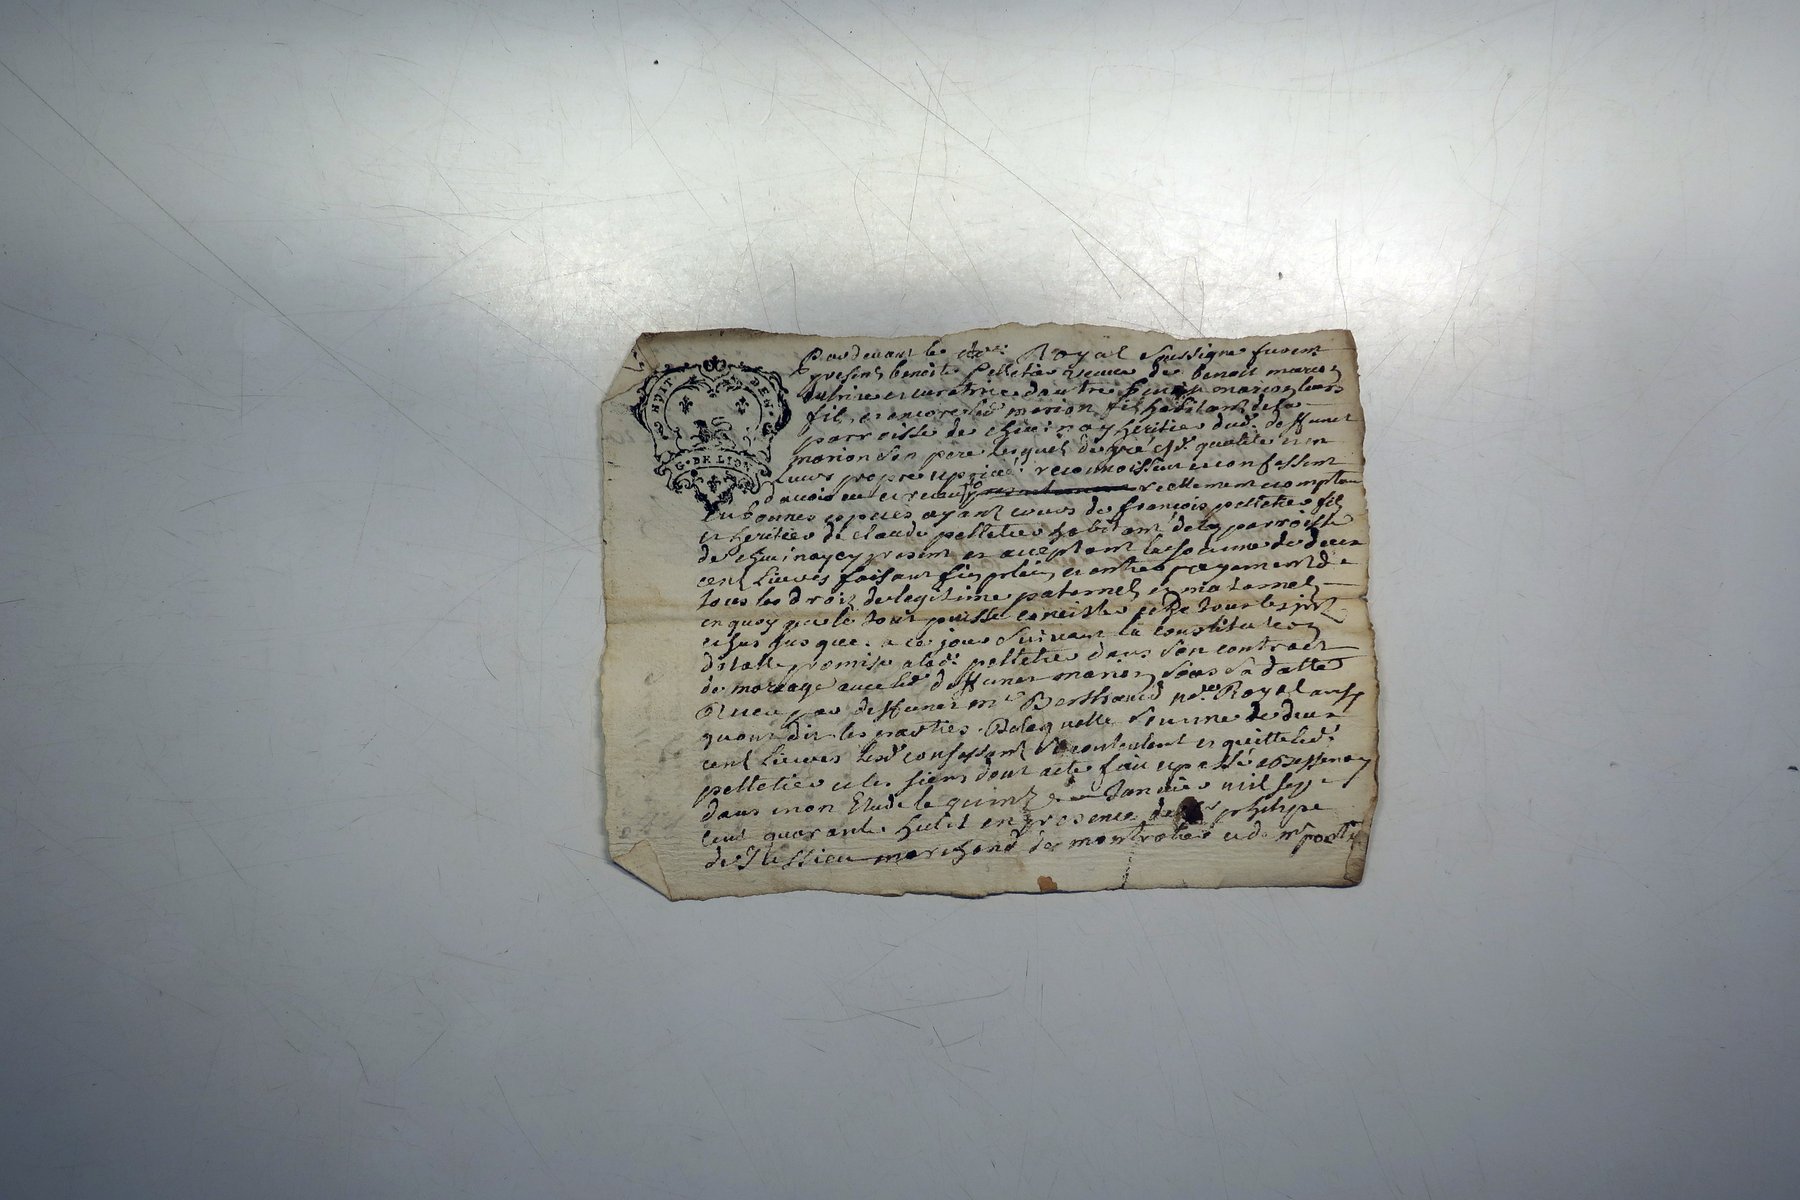 HUIT DEN.
G. DE LION
Pardevant le no.re Royal Soussigne furent
presents benoite Pelletier veuve de benoit marion
tutrice et curatrice d'autre benoit marion leurs
fils et encore led. marion fils habitant de la
parroisse de heritier dud. deffunct
marion son pere lesquels de gré esd. qualités et en
leurs propre et privé reconnoissent et confessent
d'avoir eu et receu reellement comptan
en bonnes especes ayant cours de françois pelletier fils
et heritier de claude pelletier habitant de la parroisse
de cy present et acceptant la somme de deux
cent Livres faisant fin plein et entier payement de
tous les droits de legitime paternel et maternel
en quoy que le tout puisse consister et de tous
echus jusques a ce jour suivant la constitution
promise a lad. pelletier dans son contract
de mariage avec led. deffunct marion sous sa datte
Receu par deffunct m.e Berthaud no.re Royal ainsy
quont dit les parties. De laquelle somme de deux
cent Livres lesd. confessent se contentent et quittent led.
pelletier et les siens dont acte fait et passé
dans mon Etude le quinze Janvier mil sept
cent quarante huit en presence de philipe
de marchand de montrotier et de m.e